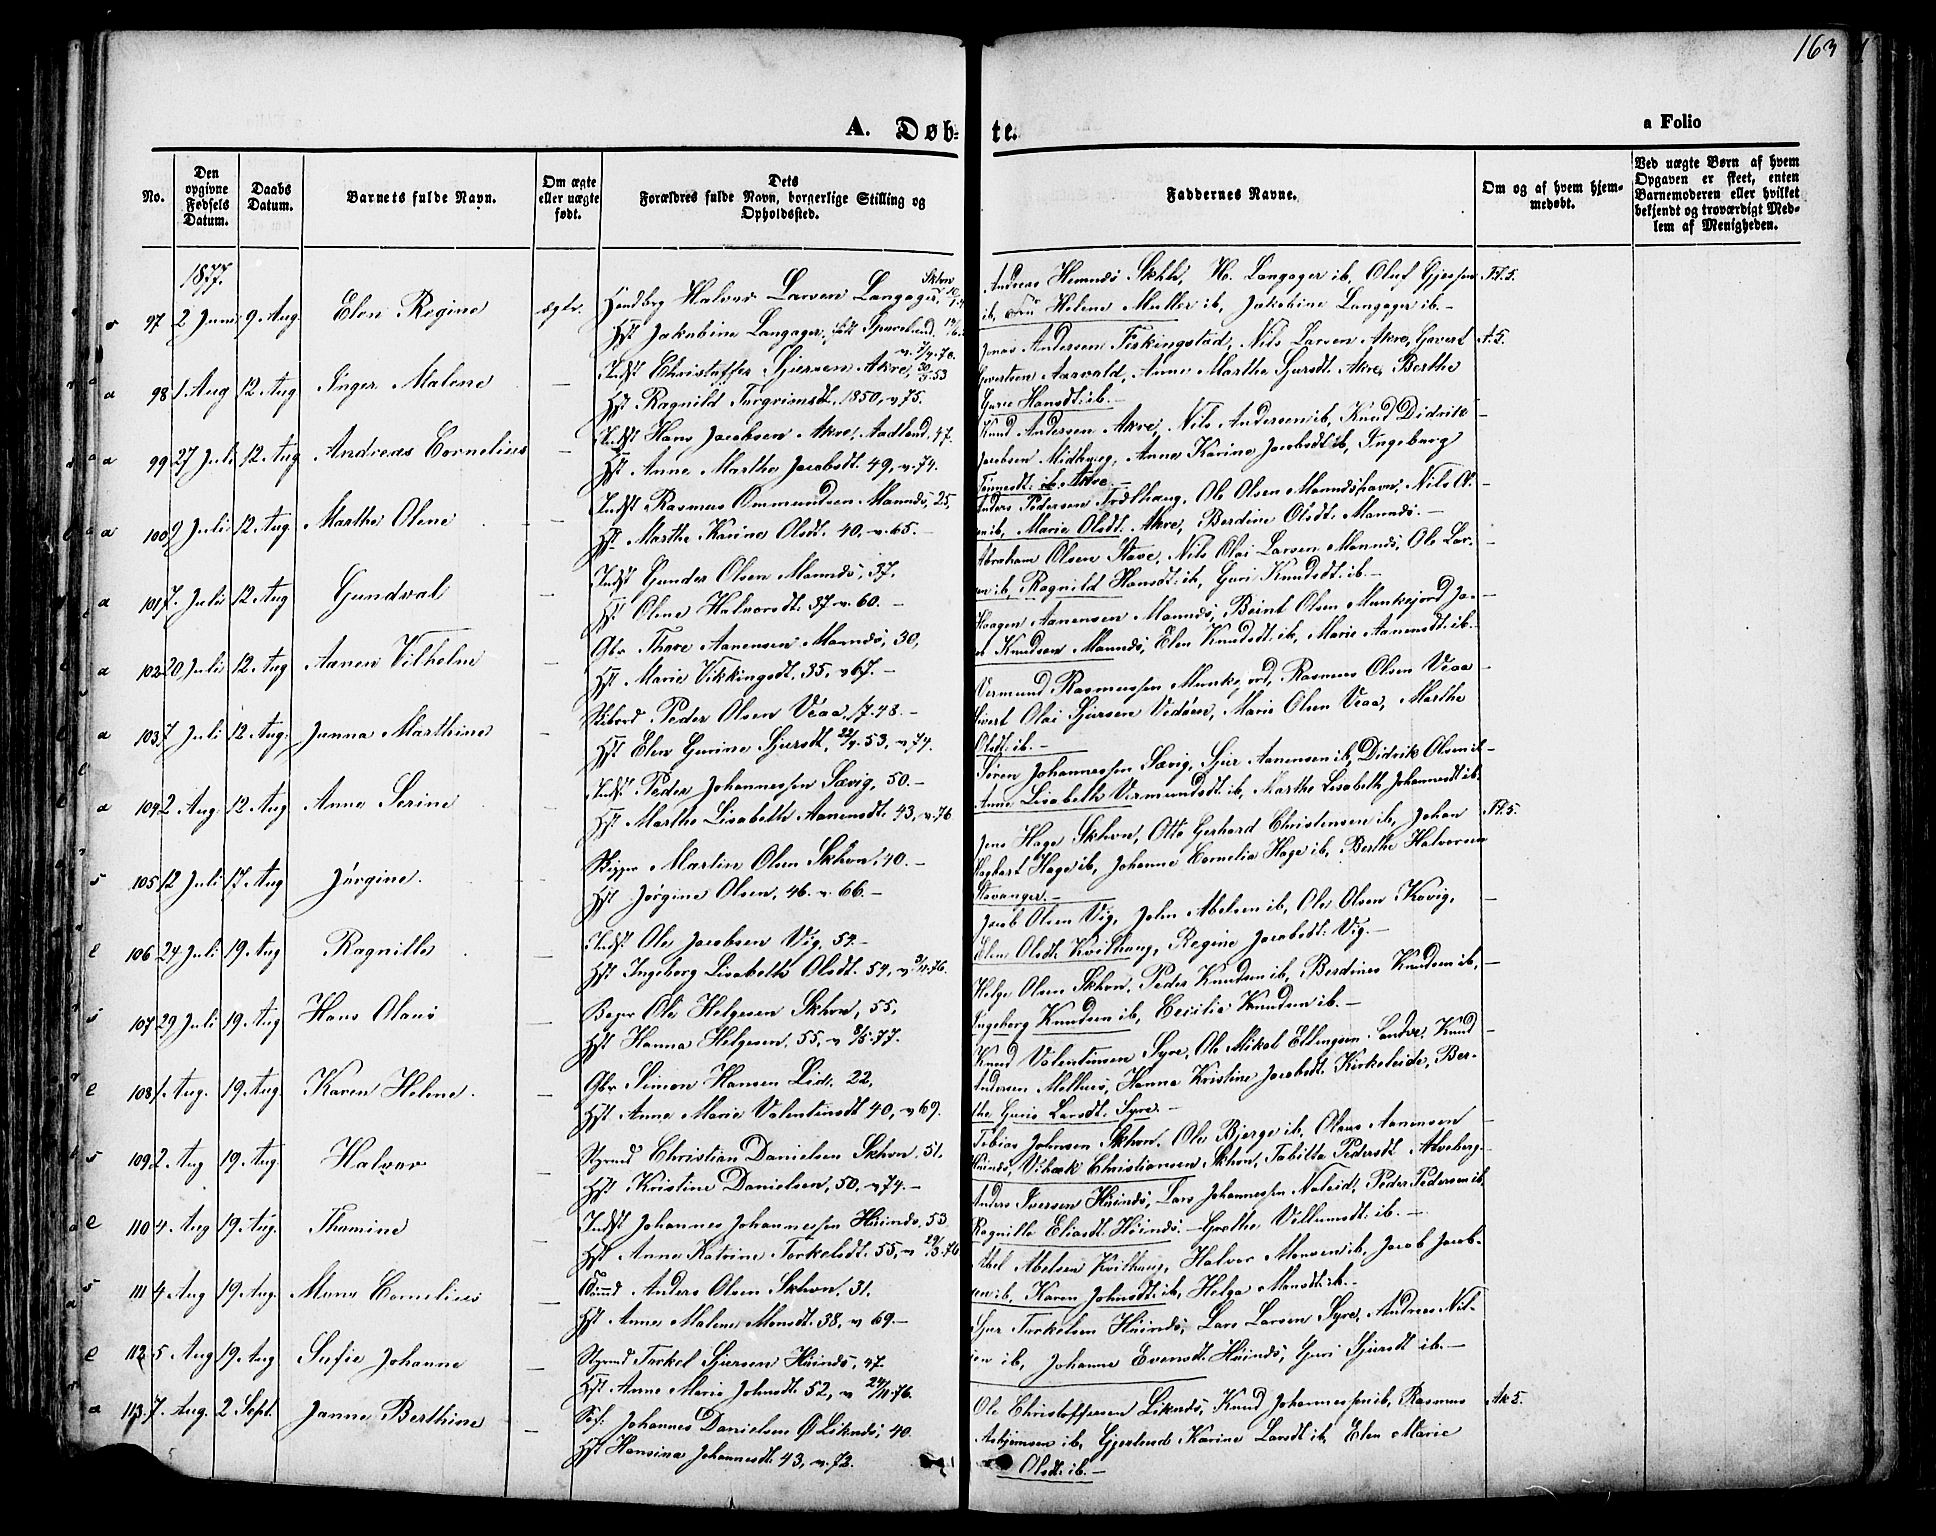 163
A. Døb-
te.
a Folio
No.
Den opgivne Fødsels Datum.
Daabs Datum.
Barnets fulde Navn.
Om ægte eller uægte født.
Dets Forældres fulde Navn, borgerlige Stilling og Opholdssted.
Faddernes Navne.
Om og af hvem hjem-
medøbt.
Ved uægte Børn af hvem
Opgaven er skeet, enten
Barnemoderen eller hvilket
bekjendt og troværdigt Med-
lem af Menigheden.
1877.
97 2 Juni 9 Aug. Elen Regine ægte. Halvor Larsen Langager, Skhvn
Hst Jakobine Langager, født
Andreas Skhv, Ho. Langager ib, Oluf
ib, Helene Muller ib, Jakobine Langager ib.
98 1 Aug 12 Aug Inger Malene — Indst Christoffer Sjursen Akre,
Hst Ragnild Torgrimsdt. 1850, v. 75.
Jonas Andersen Ferkingstad, Nils Larsen Akre, Govert
Govertsen Aarvald, Anne Marthe Sjursdt. Akre, Berthe
Gurie Hansdt. ib.
99 27 Juli 12 Aug Andreas Cornelius — Indst Hans Jacobsen Akre, Aadland, 47.
Hst Anne Marthe Jacobsdt. 49, v. 74.
Knud Andersen Akre, Nils Andersen ib, Knud Didrik
Jacobsen Midbyg, Anne Karine Jacobsdt ib, Ingeborg
Akre.
100 9 Juli 12 Aug. Marthe Olene — Indst Rasmus Ommundsen Mannds, 25,
Hst Marthe Karine Olsdt. 40, v. 65.
Anders Pedersen Trælhaug, Ole Olsen Manndshavn, Nils Ol-
sen ib, Marie Olsdt. Akre, Berdine Olsdt. Mannds.
101 7. Juli 12 Aug Gundval — Indst Gunder Olsen Mannds, 37.
Hst Olene Halvorsdt. 37 v. 60.
Abraham Olsen Stave, Nils Olai Larsen Mannds, Ole Lar-
sen ib, Ragnild Hansdt. ib, Guri Knudsdt. ib.
102 20 Juli 12 Aug Aanen Vilhelm — Gbr Thore Aanensen Mannds, 30,
Hst Marie Vikkingsdt. 35, v 67.
Haagen Aanensen Mannds, Beint Olsen Munkejord, Ja-
Knudsen Mannds, Elen Knudsdt. ib, Marie Aanensdt. ib.
103 7 Juli 12 Aug. Janna Marthine — Peder Olsen Veaa, 17. 48.
Hst Elen Gurine Sjursdt, 53, v. 74.
Vermund Rasmussen Munkejord, Rasmus Olsen Veaa
Sivert Olai Sjursen Vedøen, Marie Olsen Veaa, Marthe
Olsdt. ib.
104 2 Aug. 12 Aug Anne Serine — Indst Peder Johannessen Sævig, 50.
Hst Marthe Lisabeth Aanensdt. 43, v. 76
Søren Johannessen Sævig, Sjur Aanensen ib, Didrik Olsen ib
Anne Lisabeth Vermundsdt. ib, Marthe Lisabeth Johannesdt ib.
105 12 Juli 17 Aug Jørgine. — Skipper Martin Olsen Skhvn, 40.
Hst Jørgine Olsen, 46. v. 66.
Jens Hage Skhvn, Otto Gerhard Christensen ib, Johan
Hage ib, Johanne Cornelia Hage ib, Berthe Halvorsen
Stavanger.
106 24 Juli 19 Aug Ragnille — Indst Ole Jacobsen Vig, 54.
Hst Ingeborg Lisabeth Olsdt. 54, v. 76.
Jacob Olsen Vig, John Abelsen ib, Ole Olsen
Elen Olsdt. Kvilhaug, Regine Jacobsdt. Vig.
107 29 Juli 19 Aug Hans Olaus — Ole Helgesen Skhvn, 55,
Hst Hanna Helgesen, 55, v 77.
Helge Olsen Skhvn, Peder Knudsen ib, Berdines Knudsen ib,
Ingeborg Knudsen ib, Cecilie Knudsen ib.
108 1. Aug. 19 Aug Karen Helene. — Gbr Simon Hansen Lid, 22,
Hst Anne Marie Valentinsdt 40, v 69.
Knud Valentinsen Syre, Ole Mikal Ellingsen Sandve, Knud
Andersen Melhus, Hanna Kristine Jacobsdt. Kirkeleide, Ber-
the Gurie Larsdt. Syre.
109 2 Aug 19 Aug. Halvor — Styrmd Christian Danielsen Skhvn. 51.
Hst Kristine Danielsen, 50, v 74.
Tobias Johnsen Skhvn. Ole Bjerge ib, Olaus Aanensen
Christiansen Skhvn, Tabitta Pedersdt
110 4 Aug 19 Aug. Thomine — Indst Johannes Johannessen 53
Hst Anne Katrine Torkelsdt. 55, v 29/3.76
Anders Iversen Lars Johannessen Peder Pedersen ib
Ragnille Eliasdt. Grethe Villumsdt. ib.
111 4 Aug 19 Aug. Mons Cornelius — Anders Olsen Skhvn. 31.
Hst Anne Malene Monsdt. 38, v 69.
Abel Abelsen Kvilhaug, Halvor Monsen ib, Jacob Jacob-
sen ib, Karen Johnsdt. ib, Helga Monsdt. ib.
112 5 Aug 19 Aug Sofie Johanne — Styrmd Torkel Sjursen 47
Hst Anne Marie Johnsdt. 52, v 24/11.76.
Sjur Torkelsen Lars Larsen Syre, Andreas Nil-
sen ib, Johanne Evensdt. Guri Sjursdt ib.
113 7. Aug. 2 Sept. Janna Berthine — Johannes Danielsen Ø Liknds, 40
Hst Hansina Johannesdt. 43, v. 72.
Ole Christoffersen Liknds, Knud Johannessen ib, Rasmus
Asbjørnsen ib, Gjerlend Karine Larsdt ib, Elen Marie
Olsdt. ib.
Ak 5.